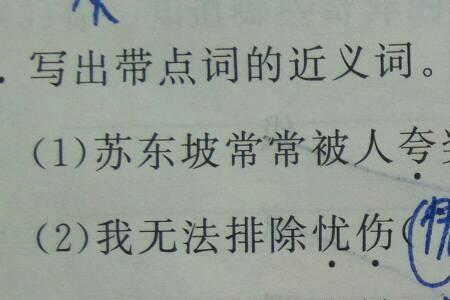 写出带点词的近义词。
(1)苏东坡常常被人夸
(2)我无法排除忧伤(